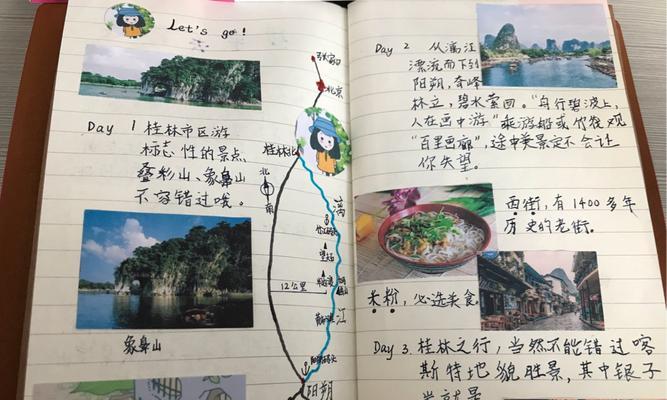 Let's go!
Day 1 桂林市区游
标志性的景点
叠彩山、象鼻山
不容错过哦。
象鼻山
张家口
北京
桂林北
北
南
漓
12公里
江
阳朔
Day 2 从漓江
漂流而下到
阳朔，奇峰
林立，碧水萦回。"舟行碧波上，
人在画中游"乘游船或竹筏观
"百里画廊"，途中美景定不会让
你失望。
西街，有1400多年
历史的老街。
米粉，必选美食
Day 3. 桂林之行，当然不能错过喀
斯特地貌胜景，其中银子